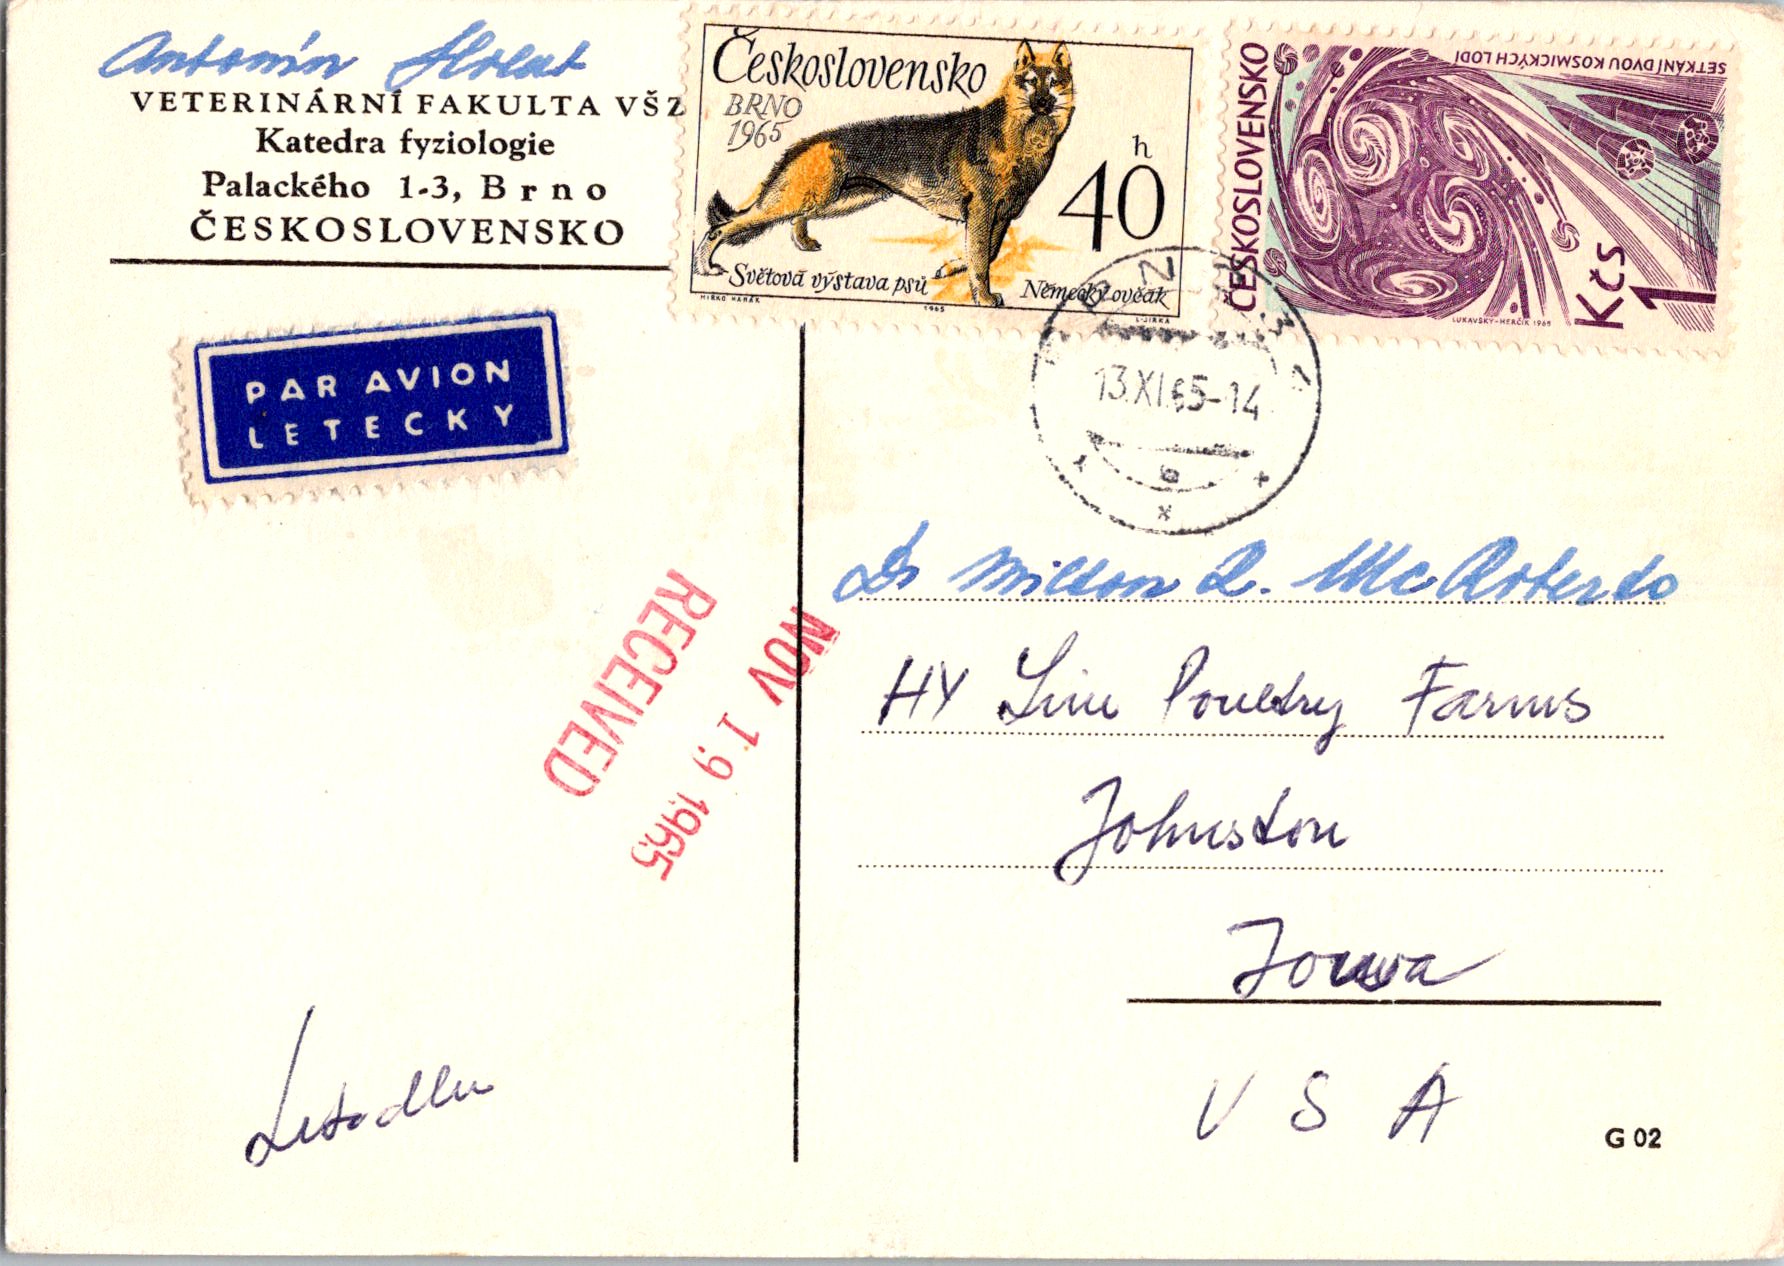 Antonín
VETERINÁRNÍ FAKULTA VŠZ
Katedra fyziologie
Palackého 1-3, Brno
ČESKOSLOVENSKO
Československo
BRNO
1965
40 h
Světová výstava psů
Německý ovčák
MIRKO HANÁK
1965
L·JIRKA
ČESKOSLOVENSKO
SETKÁNÍ DVOU KOSMICKÝCH LODÍ
Kčs 1
LUKAVSKÝ-HERČÍK 1965
PAR AVION
LETECKY
13.XI.65-14
RECEIVED
NOV 19 1965
Dr Milton R. McRoberts
HY Line Poultry Farms
Johnston
Iowa
U S A
Letadlem
G 02